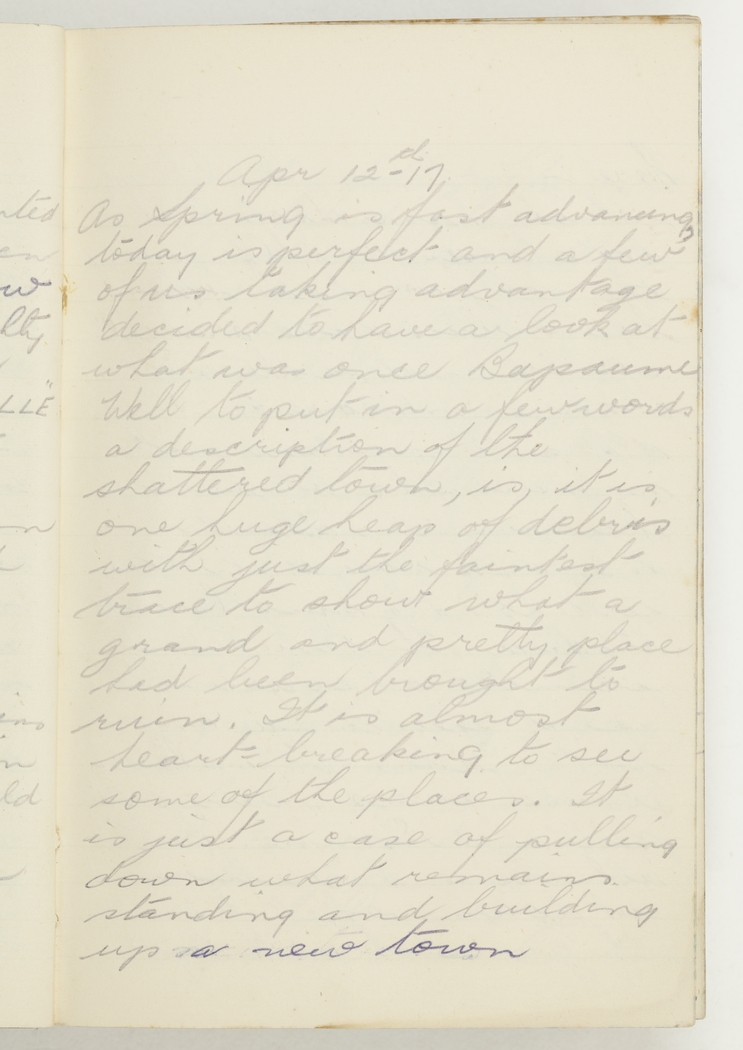 Apr 12nd-17.
As Spring is fast advancing,
today is perfect and a few
of us taking advantage
decided to have a look at
what was once Bapaume
Well to put in a few words
a description of the
shattered town, is, it is
one huge heap of debris
with just the faintest
trace to show what a
grand and pretty place
had been brought to
ruin. It is almost
heart-breaking to see
some of the places. It
is just a case of pulling
down what remains
standing and building
up a new town
nted
en
w
lty
LLE"
on
ins
n
ld